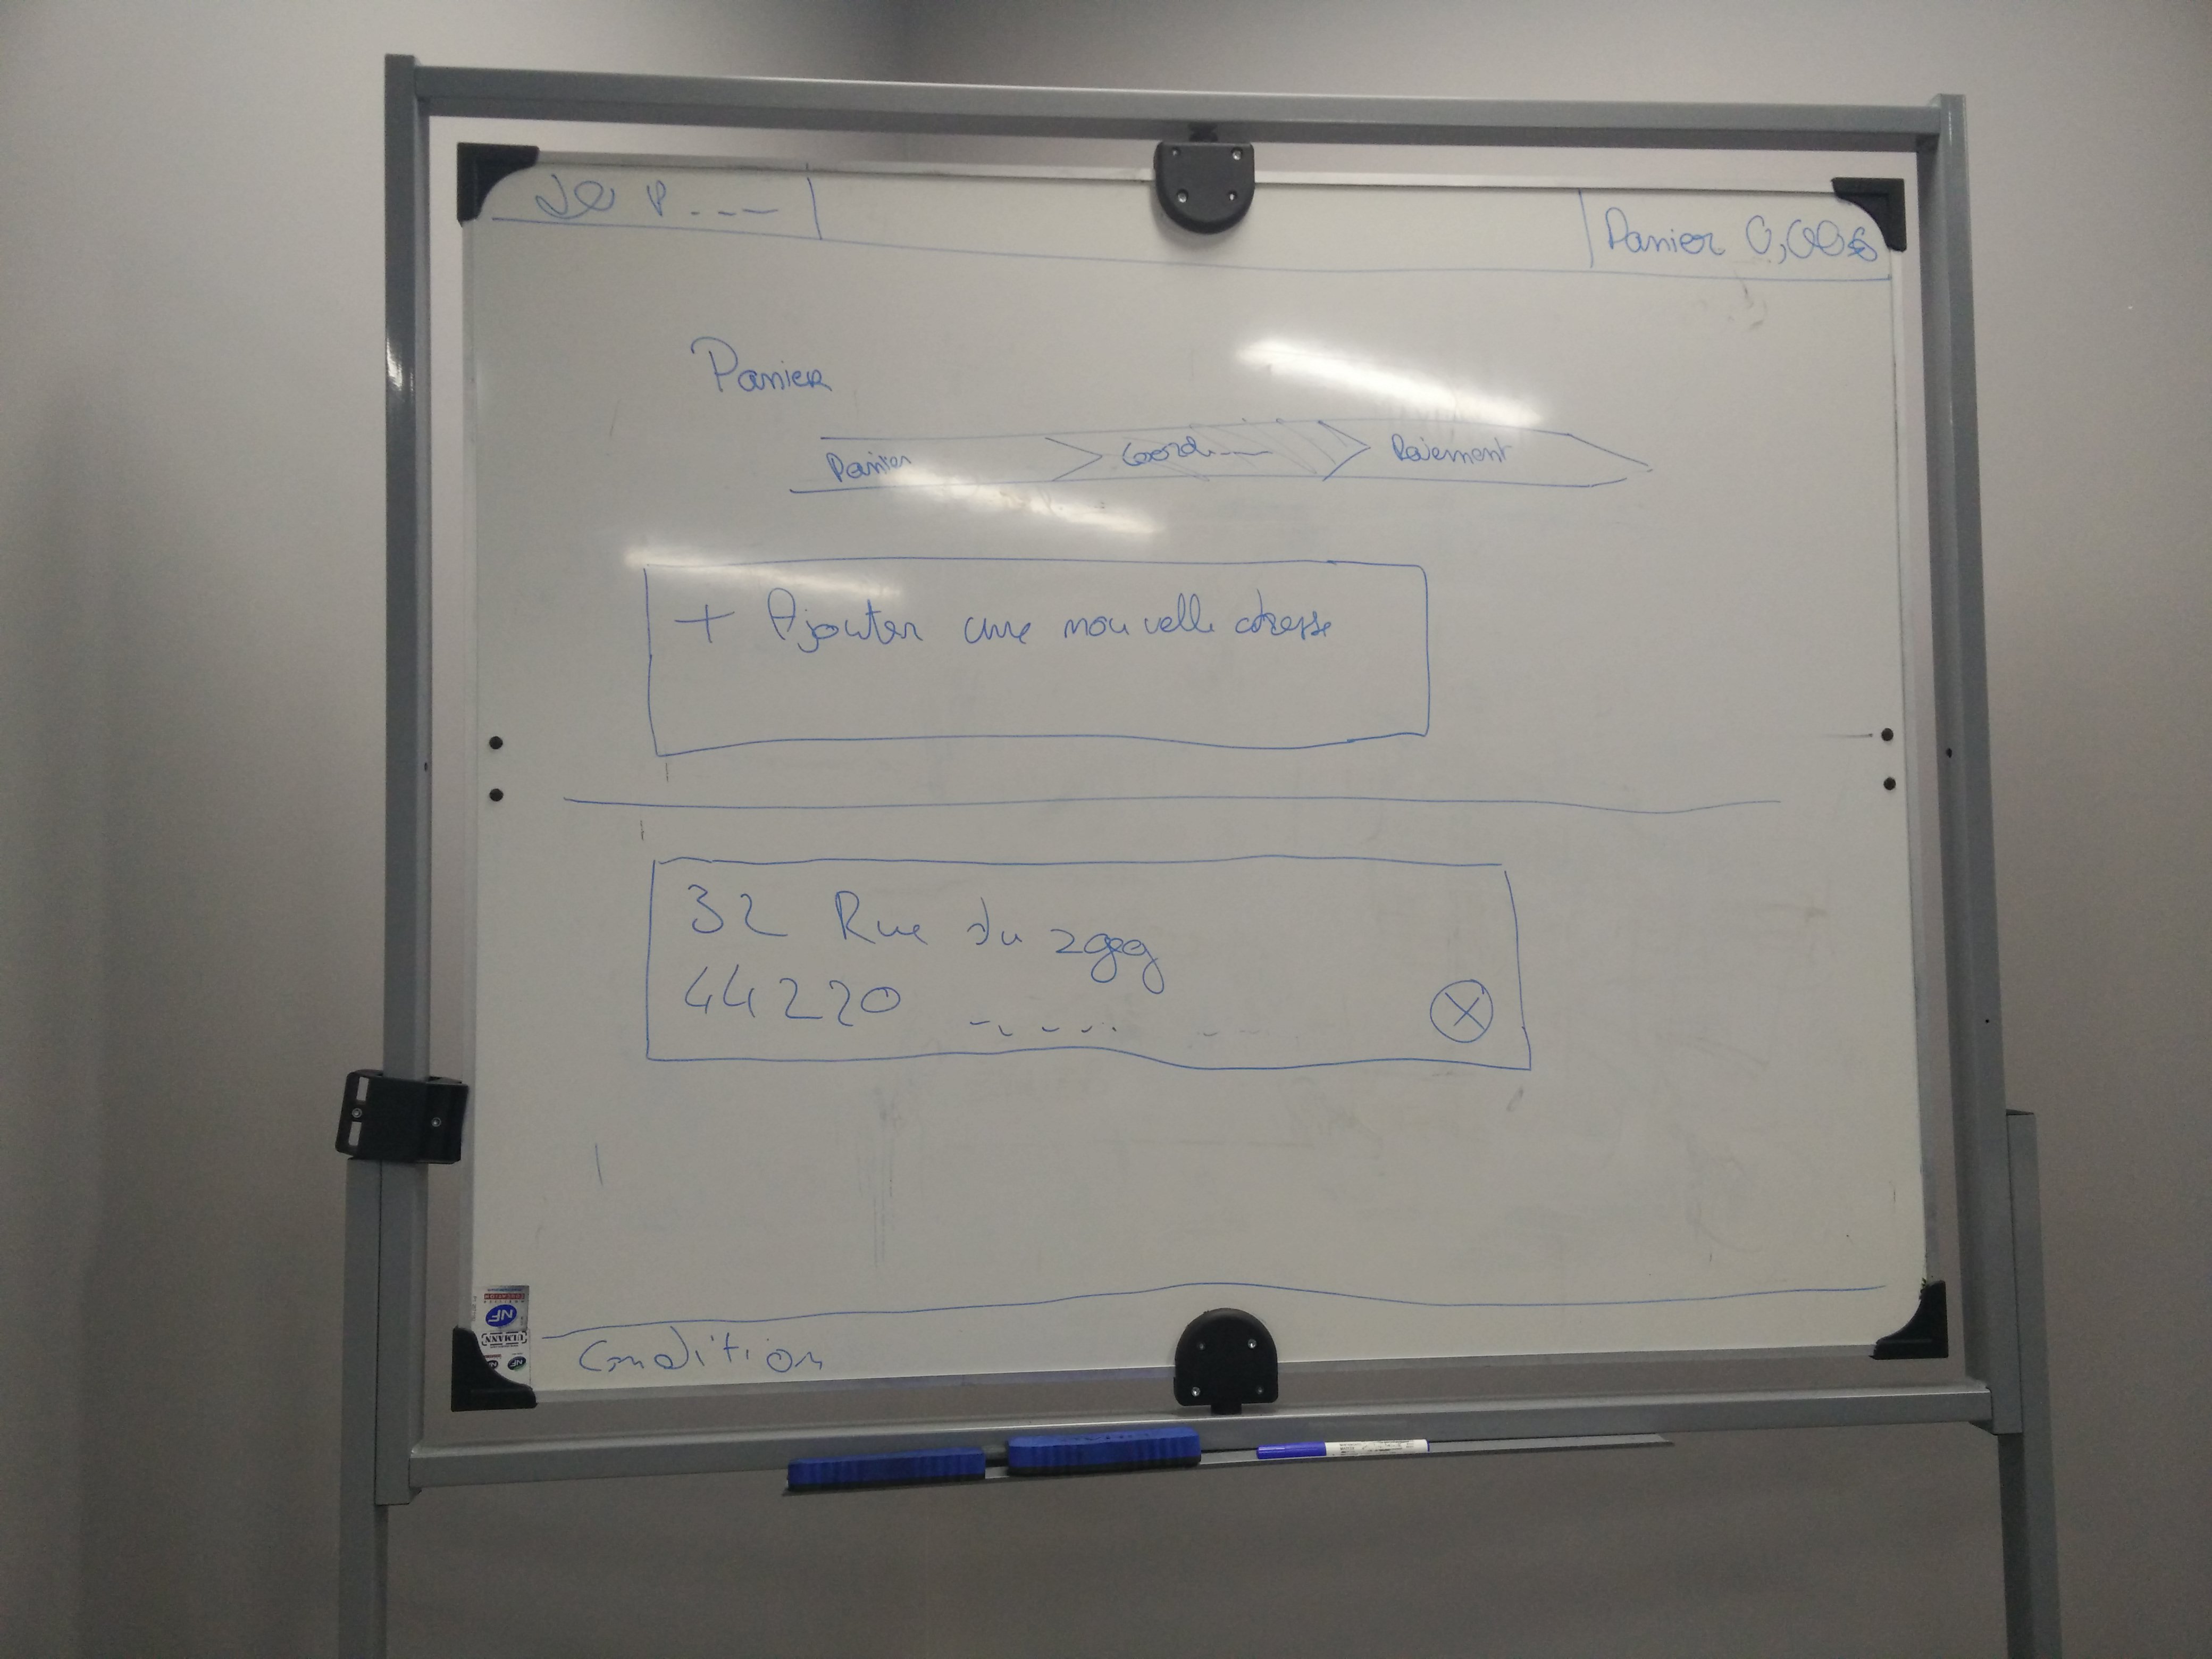 Panier 0,00€
Panier
Panier Coord.---- Paiement
+ Ajouter une nouvelle adresse
32 Rue du zgeg
44220
Condition
NF
ULMANN
NF